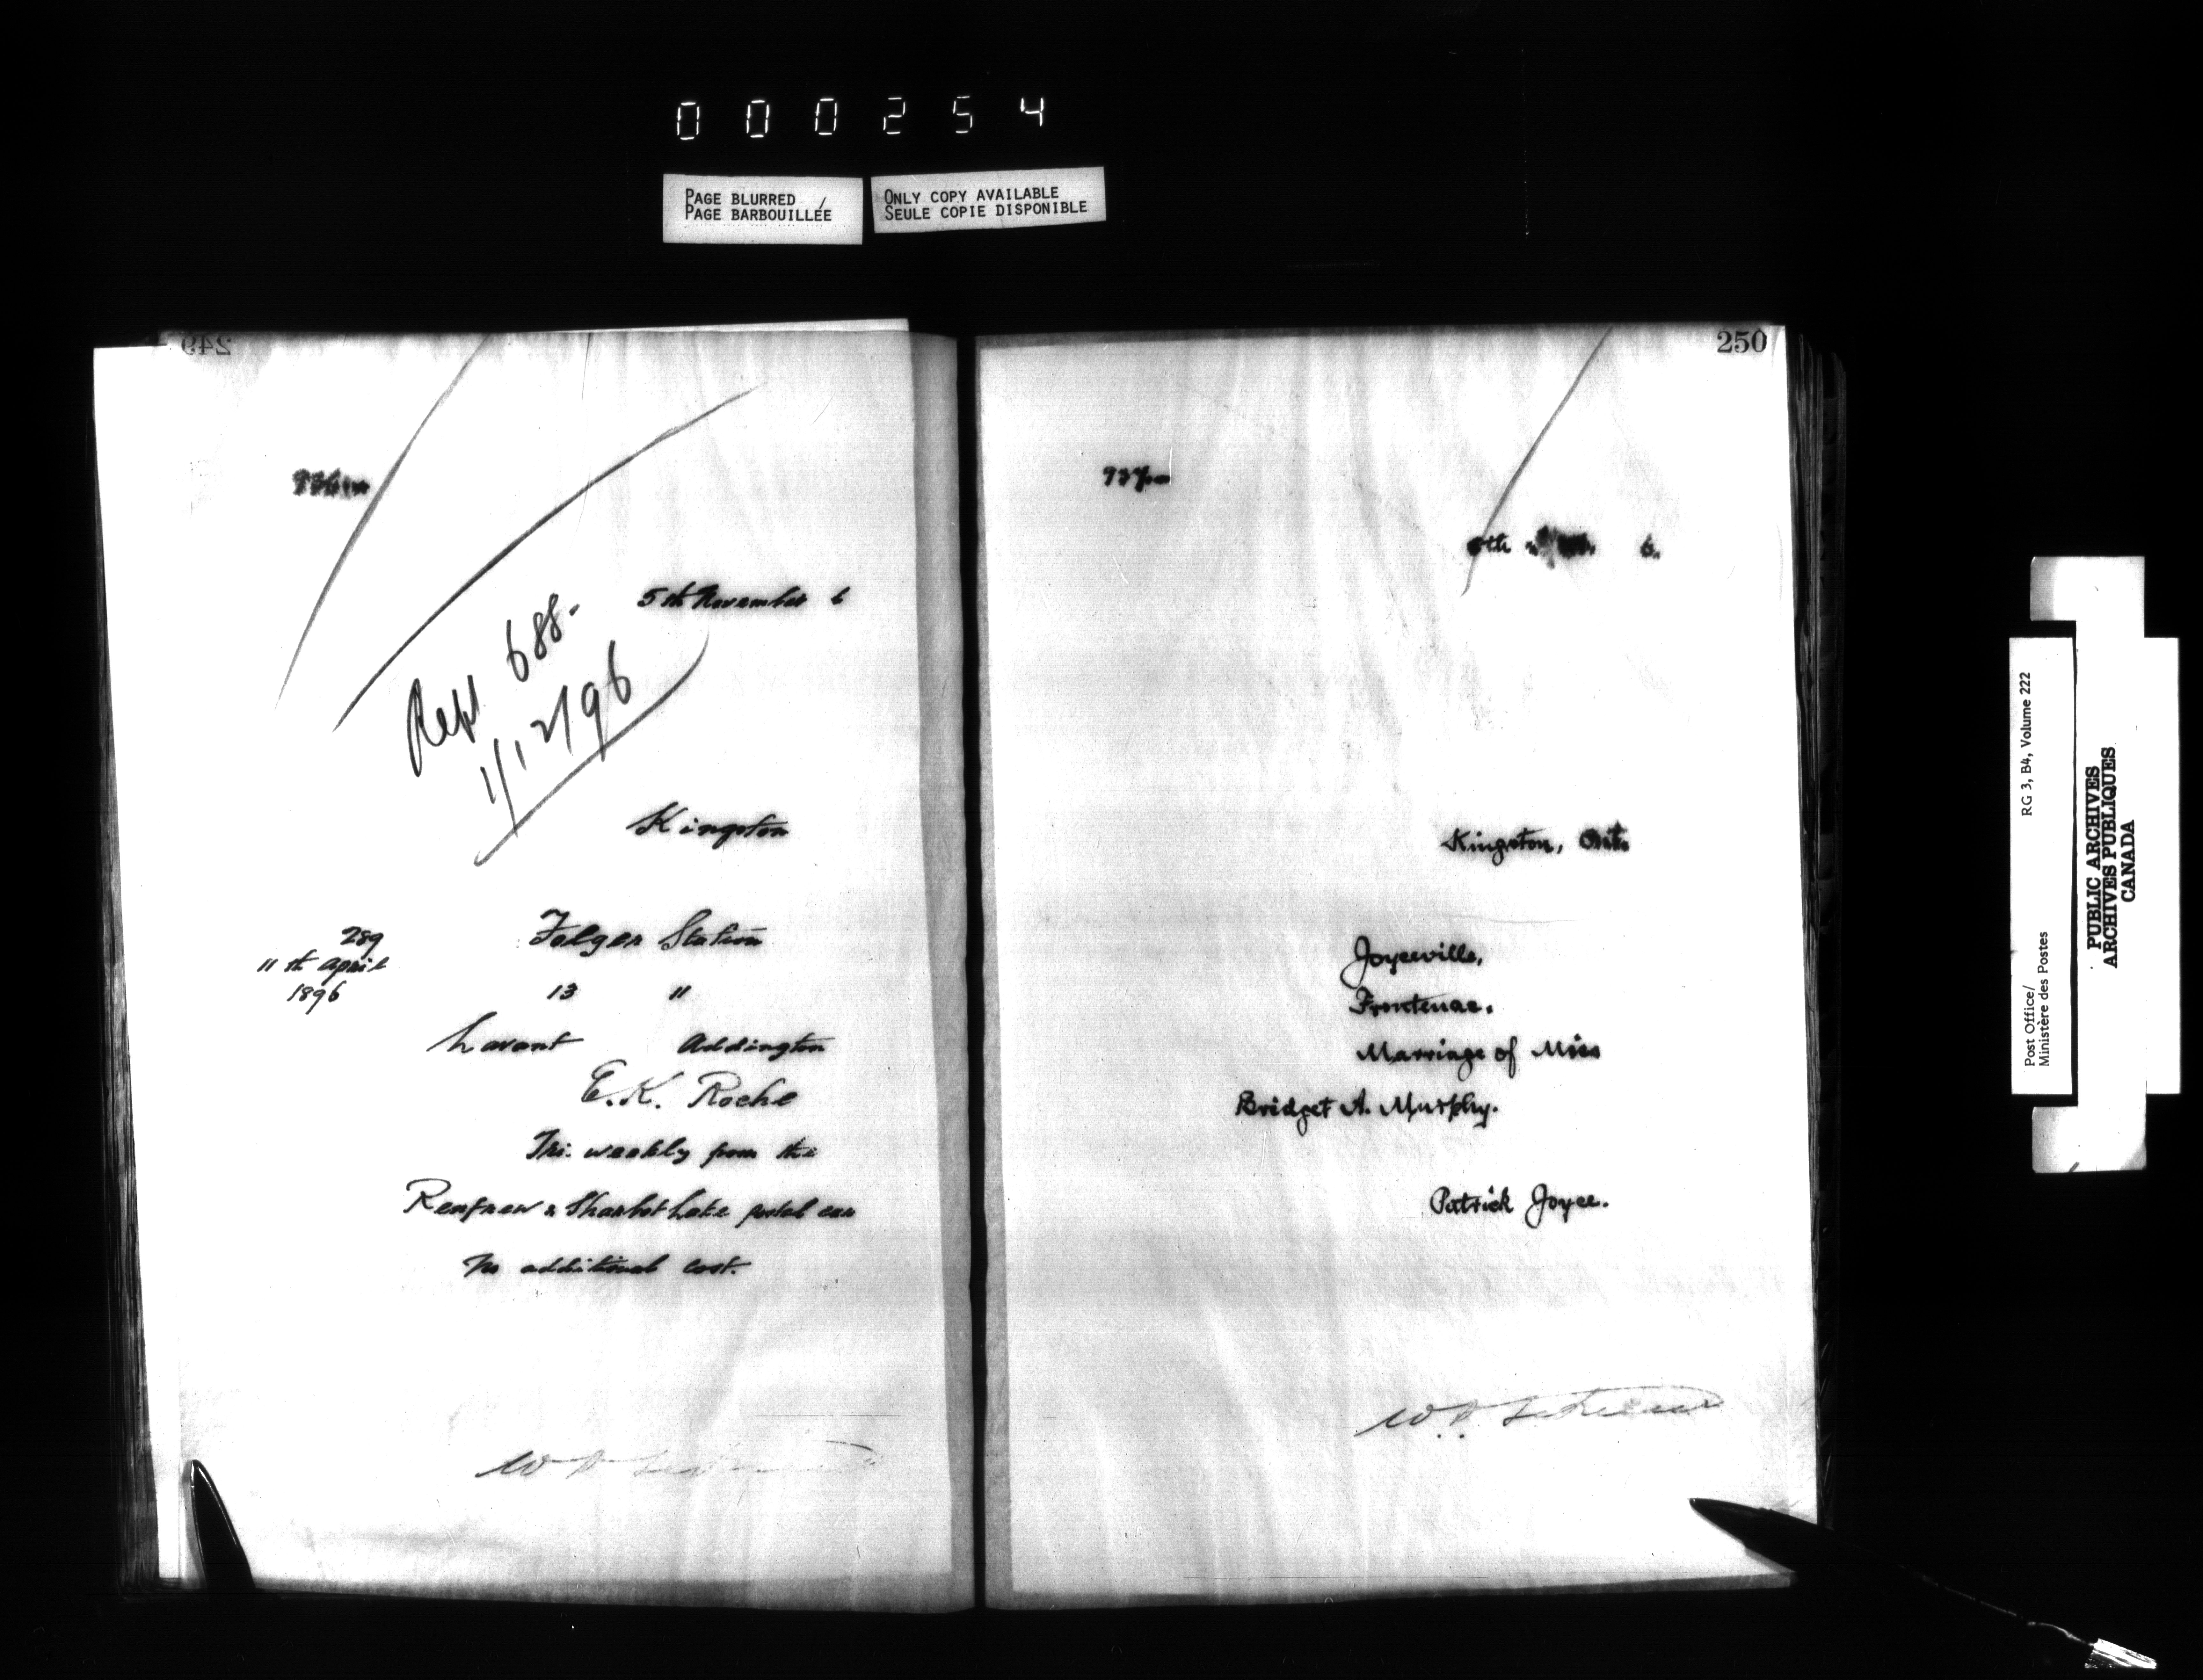 000254
PAGE BLURRED
PAGE BARBOUILLÉE
ONLY COPY AVAILABLE
SEULE COPIE DISPONIBLE
249
5th November 6
Rept 688-
1/12/96
Kingston
289
11th April
1896
Folger Station
13 "
Lavant Addington
E. K. Roche
Tri. weekly from the
Renfrew & Sharbot Lake postal car
No additional cost.
250
6.
Kingston, Ont.
Joyceville,
Frontenac.
Marriage of Miss
Bridget A. Murphy.
Patrick Joyce.
Post Office/
Ministère des Postes
RG 3, B4, Volume 222
PUBLIC ARCHIVES
ARCHIVES PUBLIQUES
CANADA